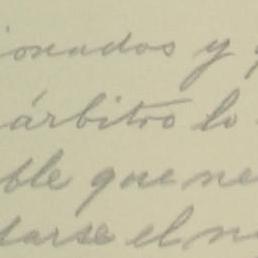 ionados y
árbitro lo
ble que ne
tarse el n